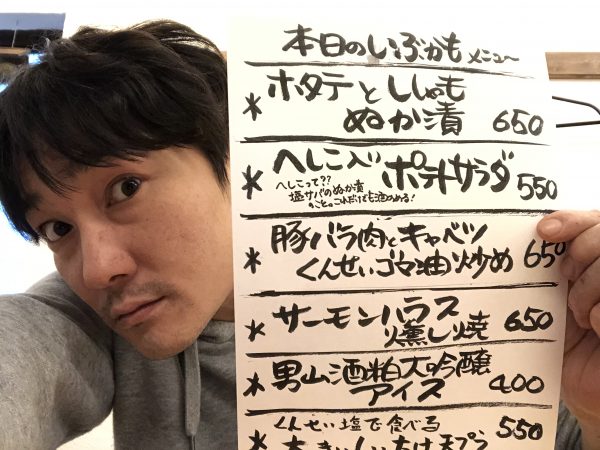 本日のいぶかもメニュー
* ホタテとししゃも
ぬか漬 650
* へしこ入りポテトサラダ 550
へしこって??
塩サバのぬか漬
* 豚バラ肉とキャベツ
くんせいゴマ油炒め 650
* サーモンハラス
燻し焼 650
* 男山酒粕大吟醸
アイス 400
* くんせい塩で食べる 550